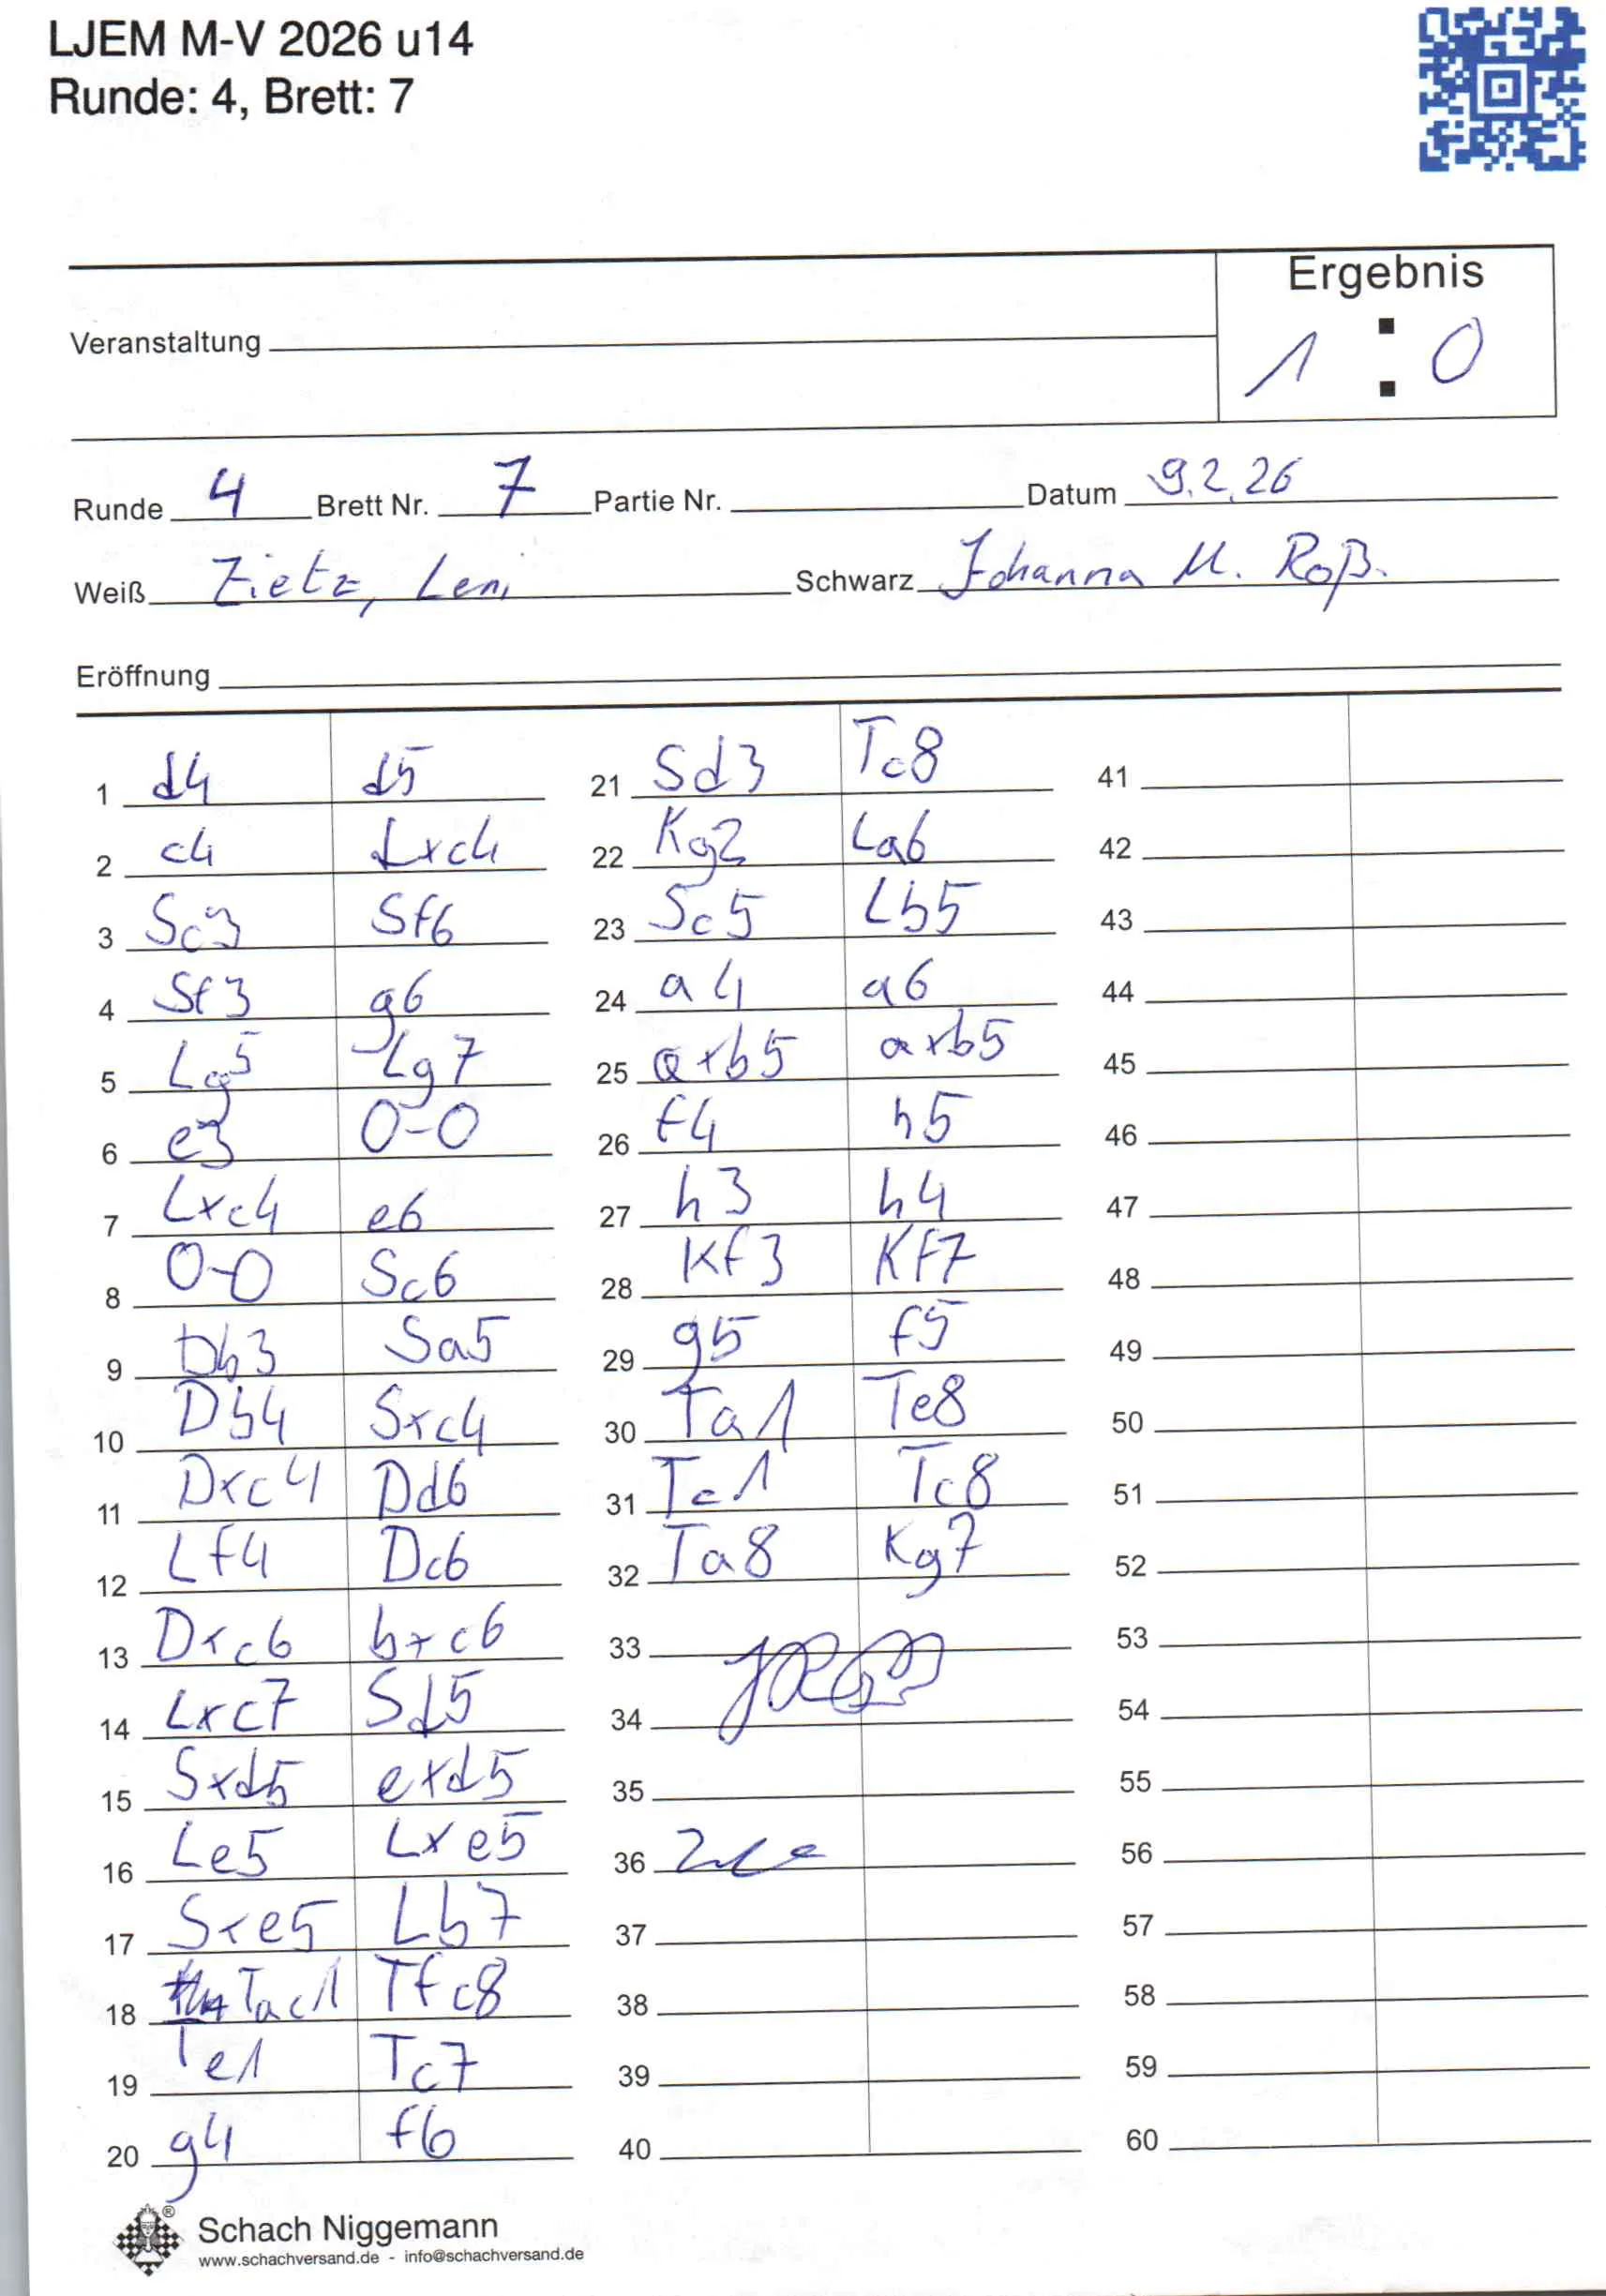 LJEM M-V 2026 u14
Runde: 4, Brett: 7
Ergebnis
Veranstaltung
1 : 0
Runde 4 Brett Nr. 7 Partie Nr. Datum 9.2.26
Weiß Zietz, Leni Schwarz Johanna M. Roß.
Eröffnung
1 d4 d5
2 c4 Lxc4
3 Sc3 Sf6
4 Sf3 g6
5 Lg5 Lg7
6 e3 0-0
7 Lxc4 e6
8 0-0 Sc6
9 Db3 Sa5
10 Db4 Sxc4
11 Dxc4 Dd6
12 Lf4 Dc6
13 Dxc6 bxc6
14 Lxc7 Sd5
15 Sxd5 exd5
16 Le5 Lxe5
17 Sxe5 Lb7
18 Tac1 Tfc8
19 Te1 Tc7
20 g4 f6
21 Sd3 Tc8
22 Kg2 La6
23 Sc5 Lb5
24 a4 a6
25 axb5 axb5
26 f4 h5
27 h3 h4
28 Kf3 Kf7
29 g5 f5
30 Ta1 Te8
31 Tc1 Tc8
32 Ta8 Kg7
33
34
35
36
37
38
39
40
41
42
43
44
45
46
47
48
49
50
51
52
53
54
55
56
57
58
59
60
Schach Niggemann
www.schachversand.de - info@schachversand.de